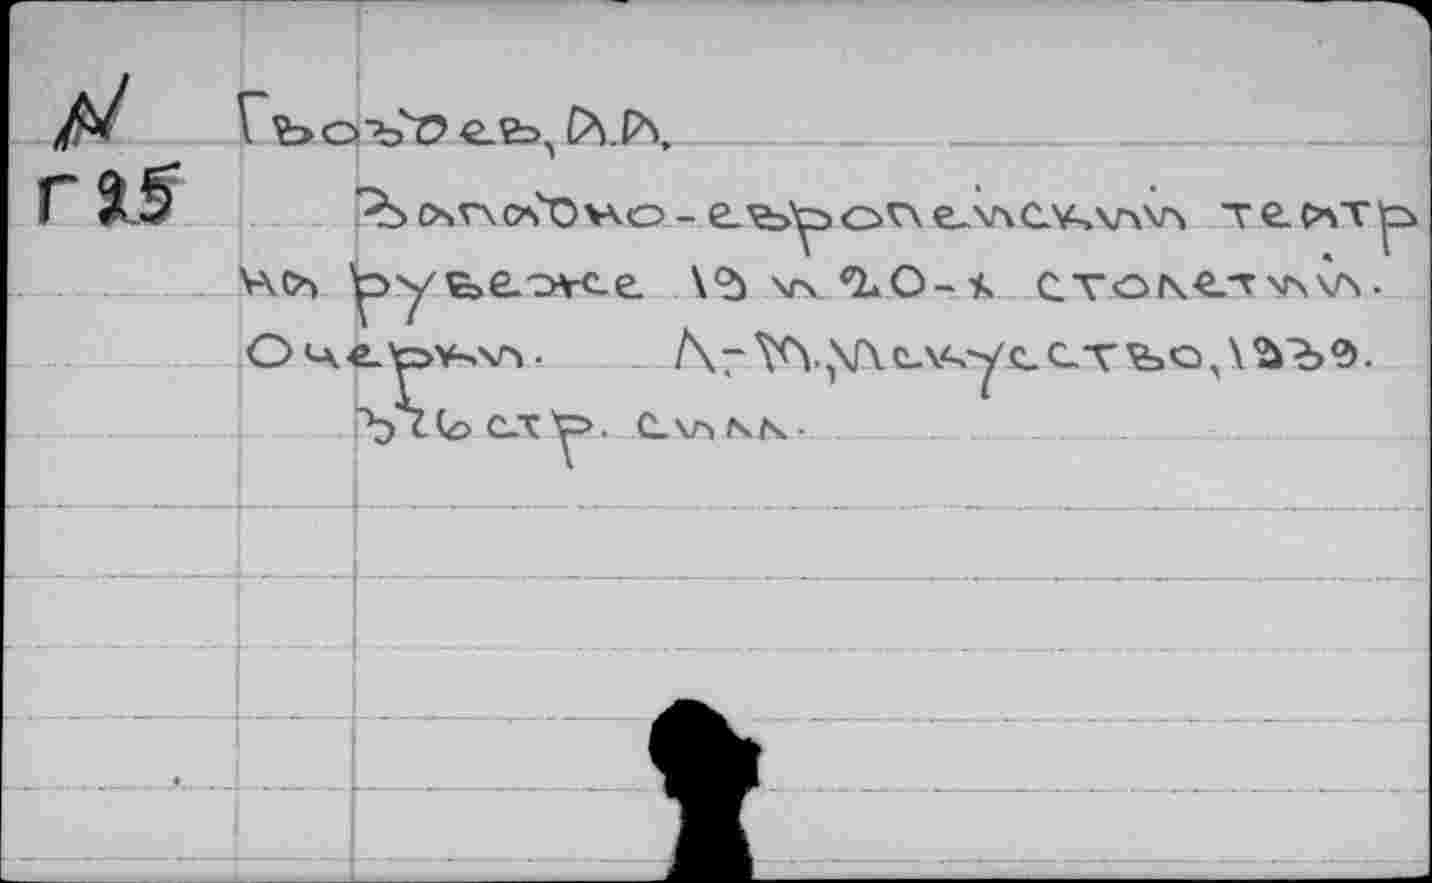 N
Г25
Гвоздев, А.А.
Западно-европейский театр
на рубеже 19 и 20-х столетий.
Очерки. Л-М., Искусство, 1939.
376 стр. с илл.